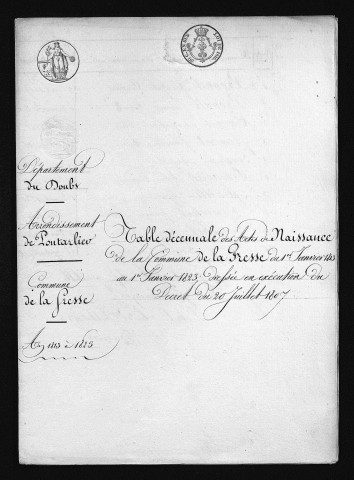 Département
du Doubs
Arrondissement
de Pontarlier
Commune
de la Fresse
An 1813 à 1823
Table décennale des Actes de Naissance
de la Commune de la Fresse du 1er Janvier 1813
au 1er Janvier 1823 dressée en exécution du
Decret du 20 Juillet 1807